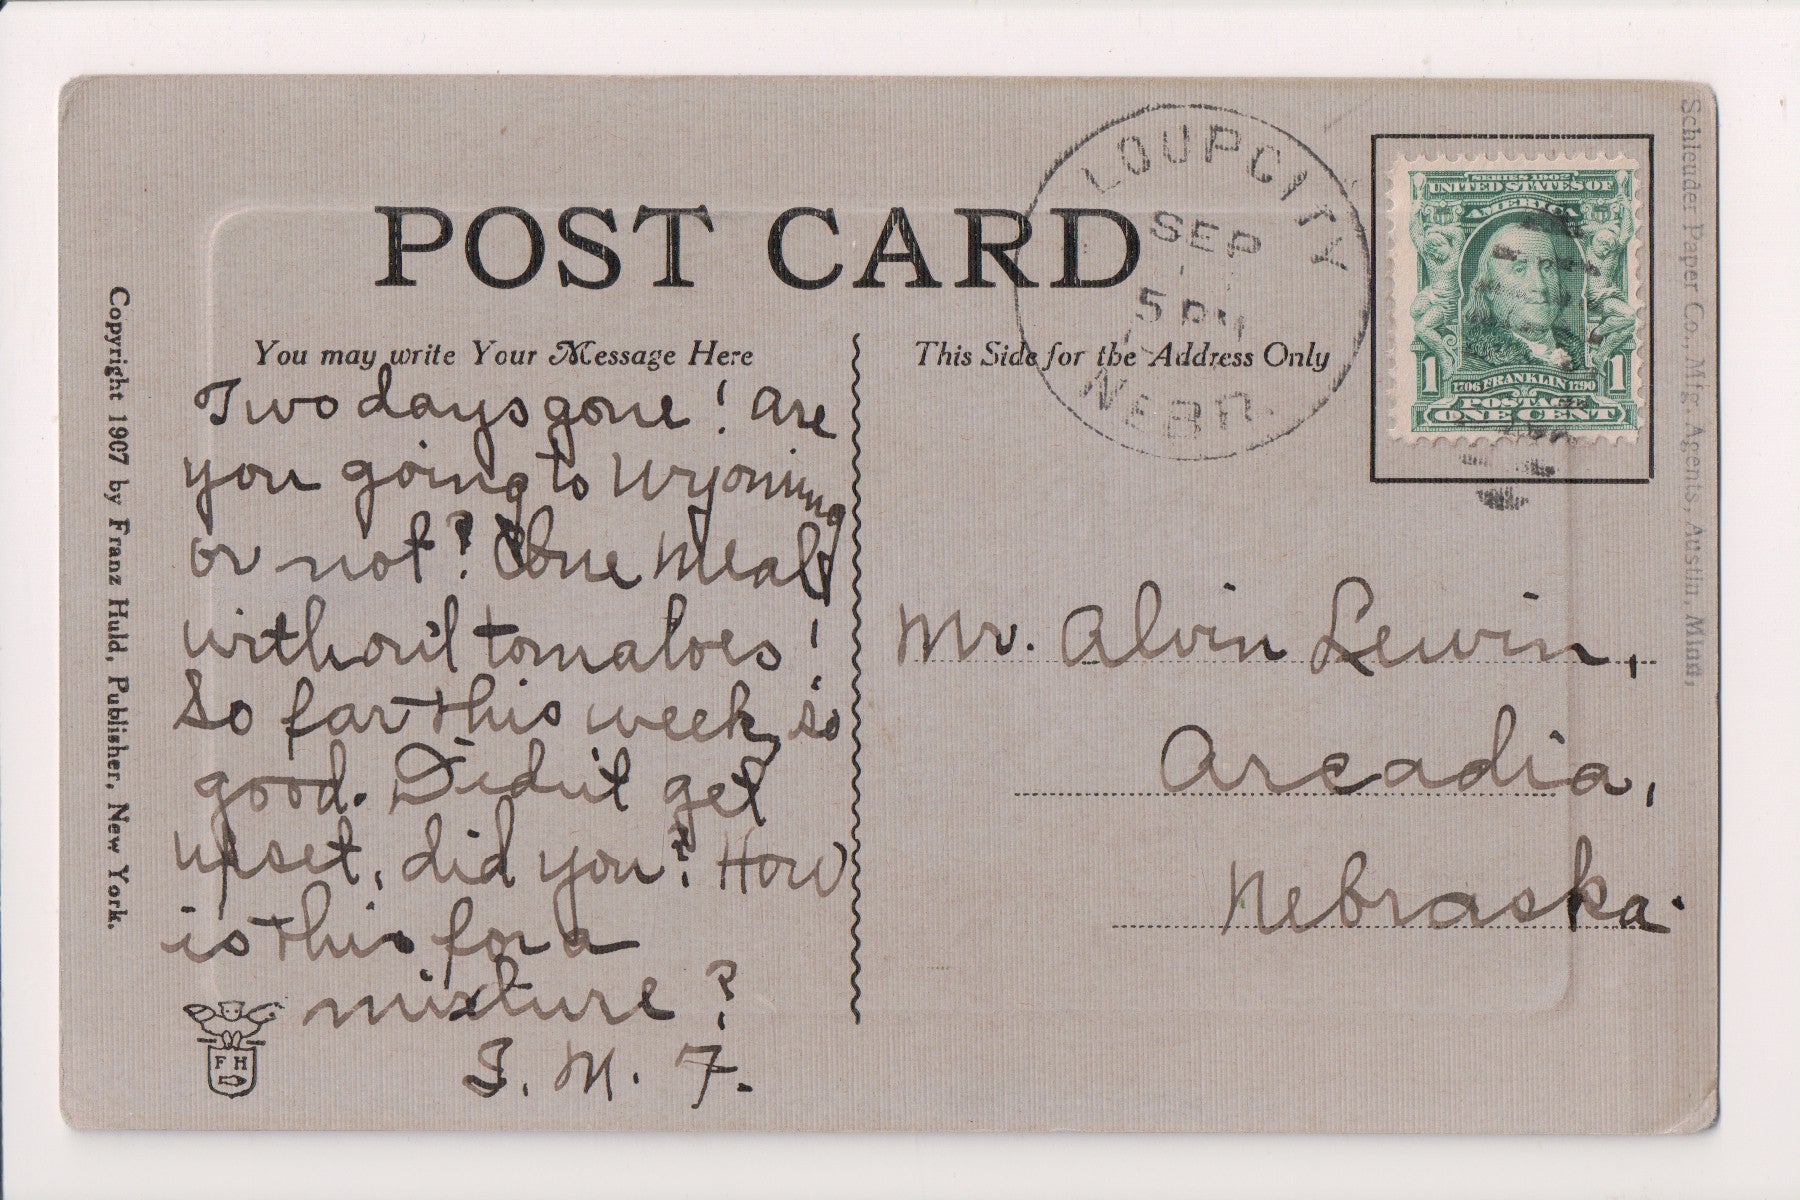 POST CARD
You may write Your Message Here
This Side for the Address Only
LOUP CITY
SEP
5 PM
NEBR.
SERIES 1902
UNITED STATES OF
AMERICA
1 1706 FRANKLIN 1790 1
POSTAGE
ONE CENT
Two days gone! Are
you going to Wyoming
or not? One meal
without tomatoes!
So far this week, so
good. Didn't get
upset, did you? How
is this for a
mixture?
I. M. F.
Mr. Alvin Lewin,
Arcadia,
Nebraska.
Copyright 1907 by Franz Huld, Publisher, New York.
F H
Schleuder Paper Co., Mfg. Agents, Austin, Minn.